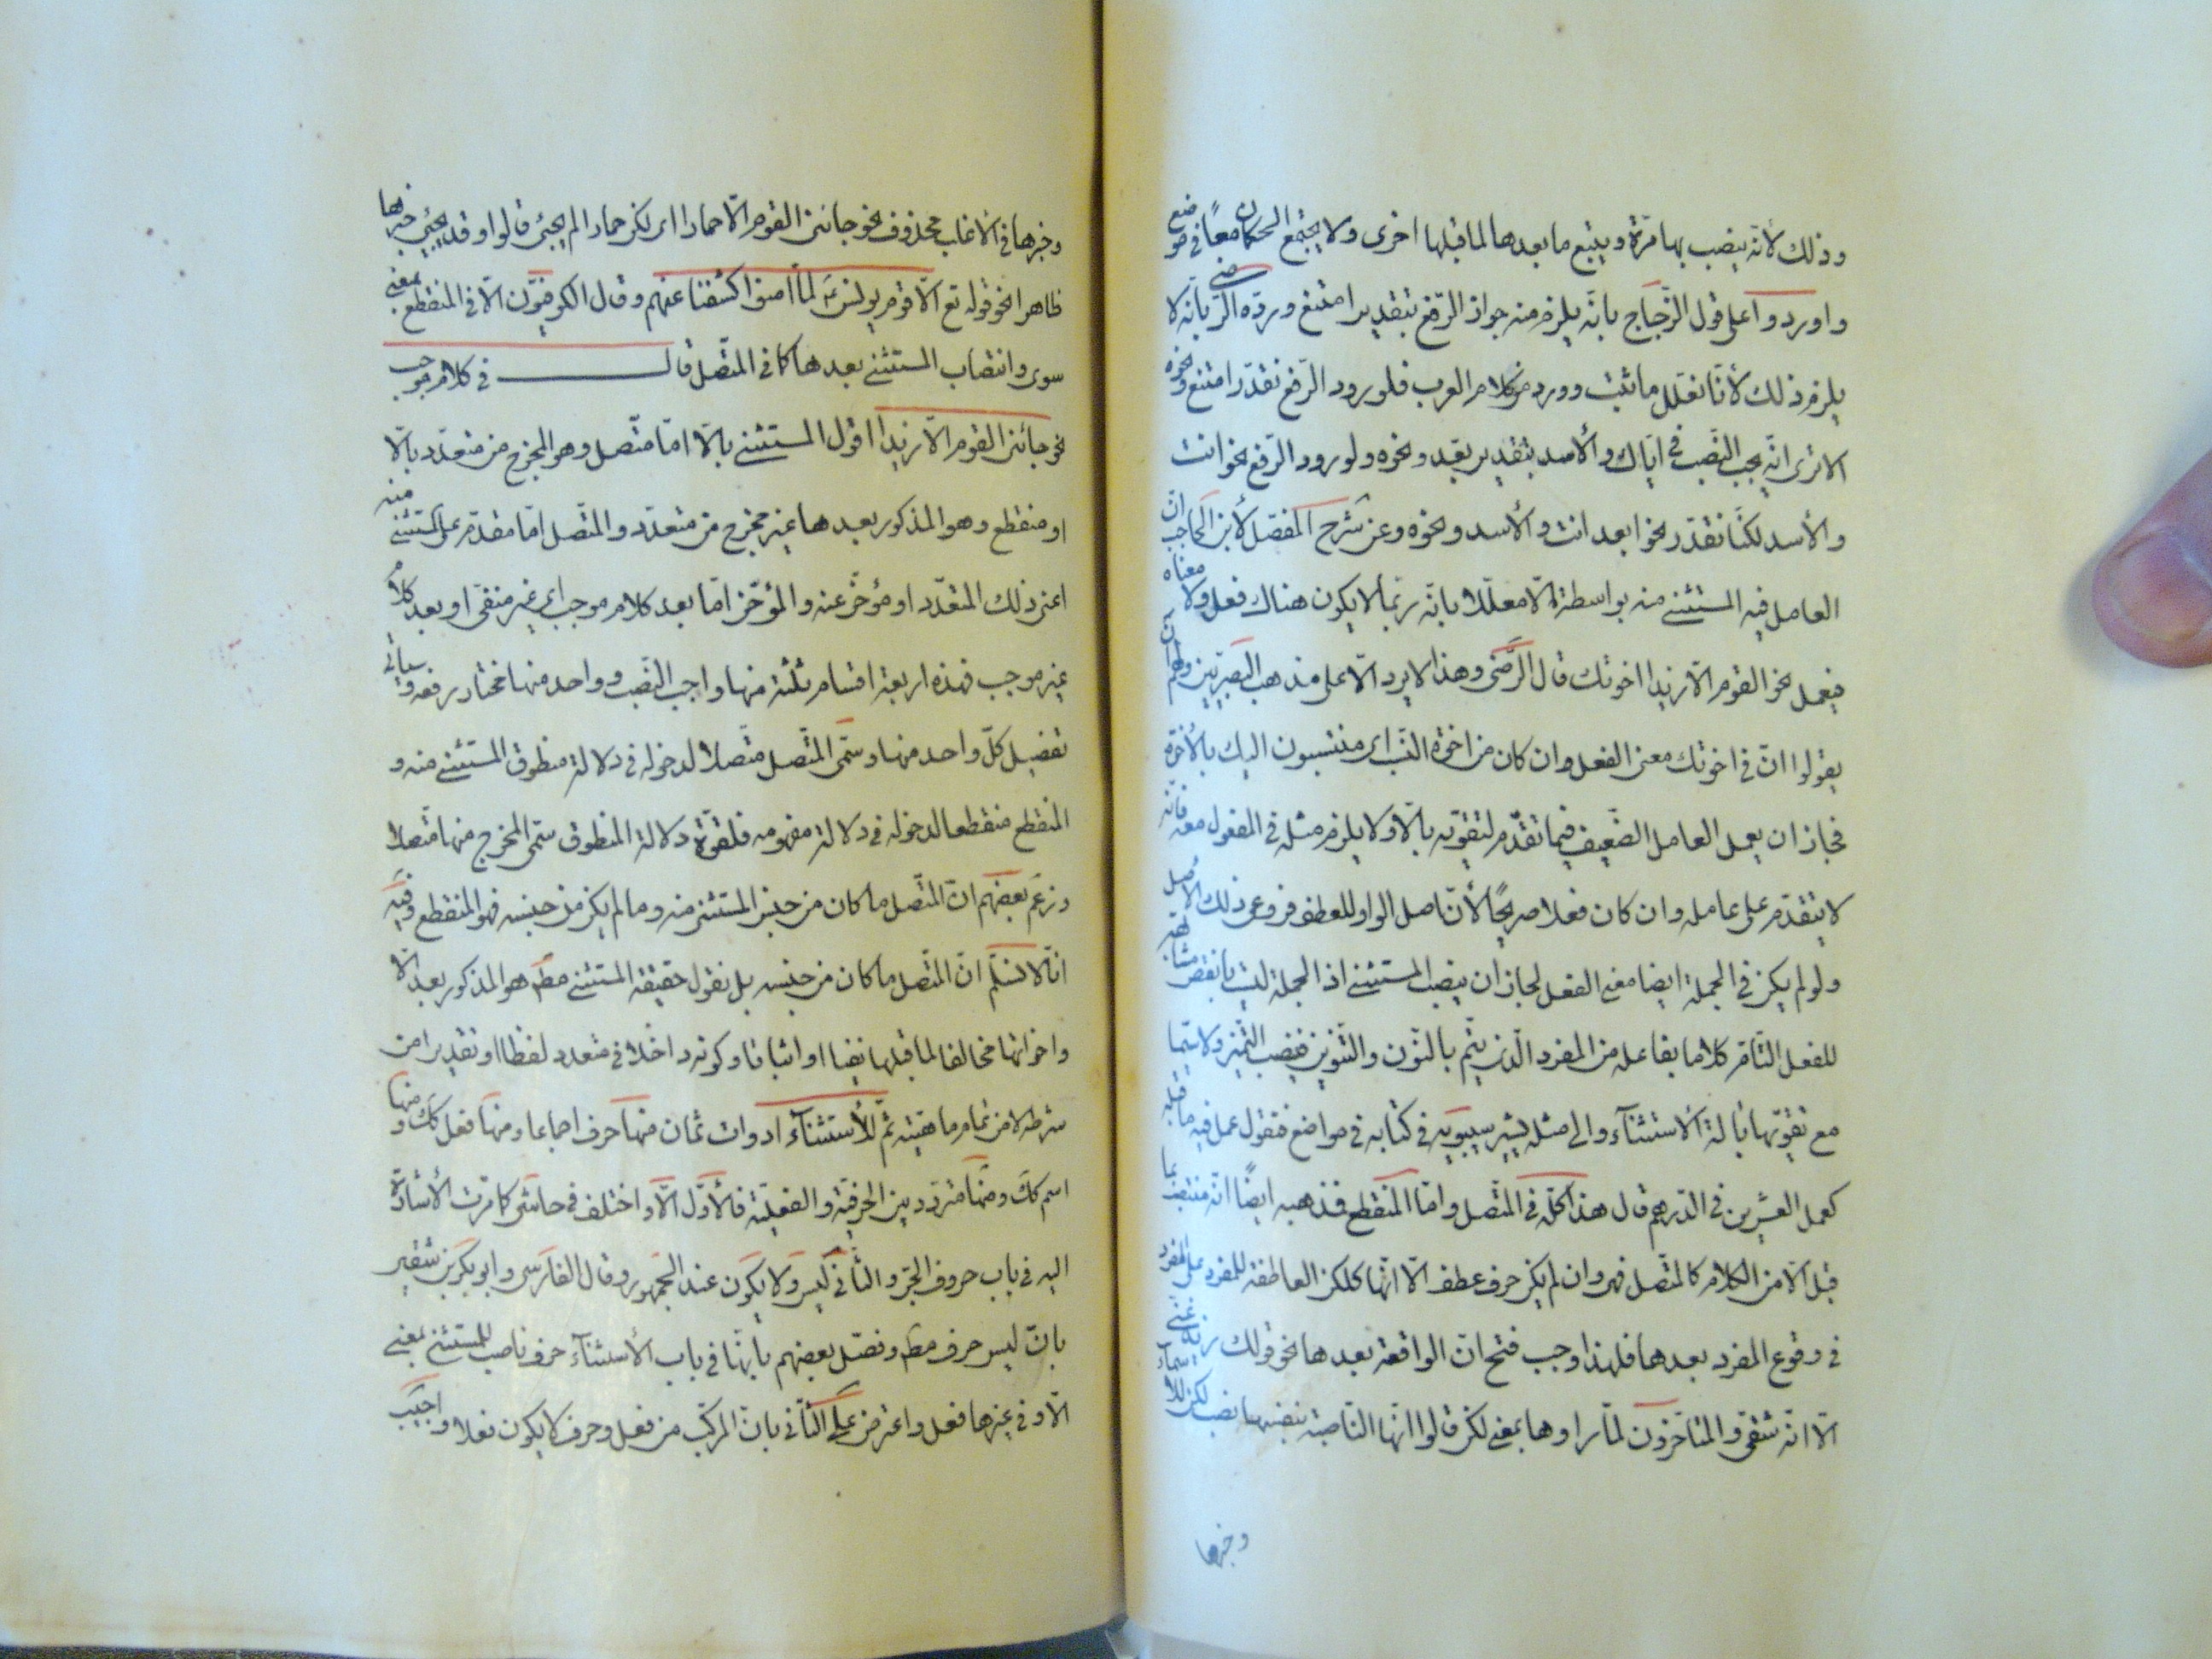 وذلك لأنه ينصب بها مرّة ويتبع ما بعدها لما قبلها اخرى ولا يجتمع الحكمان معًا في موضع
واوردوا على قول الزّجاج بانّه يلزم منه جواز الرّفع بتقدير امتنع وردّه الرّضي بانّه لا
يلزم ذلك لأنّا نعلّل ما ثبت وورد من كلام العرب فلو ورد الرّفع نقدّر امتنع ونحوه
الا ترى انّه يجب النّصب في ايّاك والأسد بتقدير بعّد ونحوه ولو ورد الرّفع نحو انت
والأسد لكنّا نقدّر نحو ابعد انت والأسد ونحوه وعن شرح المفصّل لأبن الحاجب انّ
العامل فيه المستثنى منه بواسطة الّا معلّلا بانّه ربّما لا يكون هناك فعل ولا معناه
فيعمل نحو القوم الّا زيدا اخوتك قال الرّضى وهذا لا يرد الّا على مذهب البصريّين ولهم ان
يقولوا انّ في اخوتك معنى الفعل وان كان من اخوة النّسب اى منتسبون اليك بالأخوّة
فجاز ان يعمل العامل الضّعيف فيما تقدّم لتقوّيه بالّا ولا يلزم مثله في المفعول معه فانّه
لا يتقدّم على عامله وان كان فعلا صريحًا لأنّ اصل الواو للعطف فروعى ذلك الاصل
ولو لم يكن في الجملة ايضا معنى الفعل لجاز ان ينصب المستثنى اذ الجملة ليست بانقص مشابهة
للفعل التّام كلاما بفاعله من المفرد الّذى يتمّ بالنّون والتّنوين فينصب التّميز ولا سيّما
مع تقوّيها بآلة الأستثناء والى مثله يشير سيبويه في كتابه في مواضع فيقول عمل فيه ما قبله
كعمل العشرين في الدّرهم قال هذا كلّه في المتّصل وامّا المنقطع فمذهبه ايضًا انّه منتصب بما
قبل الّا من الكلام كالمتّصل فهى وان لم يكن حرف عطف الّا انّها كلكن العاطفة للمفرد على المفرد
في وقوع المفرد بعدها فلهذا وجب فتح انّ الواقعة بعدها نحو قولك زيد غنى
الّا انّه شقى والمتاخّرون لمّا راوها بمعنى لكن قالوا انّها النّاصبة بنفسها نصب لكن للاسماء
وخبرها
وخبرها في الاغلب محذوف نحو جائنى القوم الّا حمارا اى لكن حمارا لم يجئ قالوا وقد يجيئ خبرها
ظاهرا نحو قوله تع الّا قوم يونس لمّا امنوا كشفنا عنهم وقال الكوفيّون الّا في المنقطع بمعنى
سوى وانتصاب المستثنى بعدها كما في المتّصل قال في كلام موجب
نحو جائنى القوم الّا زيدا اقول المستثنى بالّا امّا متّصل وهو المخرج من متعدّد بالّا
او منقطع وهو المذكور بعدها غير مخرج من متعدّد والمتّصل امّا مقدّم على المستثنى منه
اعنى ذلك المتعدّد او مؤخّر عنه والمؤخّر امّا بعد كلام موجب اى غير منفىّ او بعد كلام
غير موجب فهذه اربعة اقسام ثلثة منها واجب النّصب وواحد منها مختار رفعه وسياتى
تفصيل كلّ واحد منها وسمّى المتّصل متّصلا لدخوله في دلالة منطوق المستثنى منه و
المنقطع منقطعا لدخوله في دلالة مفهومه فلقوّة دلالة المنطوق سمّى المخرج منها متّصلا
وزعم بعضهم انّ المتّصل ما كان من جنس المستثنى منه وما لم يكن من جنسه فهو المنقطع وفيه
انّا لا نسلّم انّ المتّصل ما كان من جنسه بل نقول حقيقة المستثنى مط هو المذكور بعد الّا
واخواتها مخالفا لما قبلها نفيا او اثباتا وكونه داخلا في متعدد لفظا او تقديرا من
شرطه لا من تمام ماهيّته ثمّ للأستثناء ادوات ثمان منها حرف اجماعا ومنها فعل كك ومنها
اسم كك ومنها متردّد بين الحرفيّة والفعليّة فالأوّل الّا واختلف في حاشى كما مرّت الأشارة
اليه في باب حروف الجرّ والثّاني ليس ولا يكون عند الجمهور وقال الفارسى وابو بكر بن شقير
بانّ ليس حرف مط وفصّل بعضهم بانّها في باب الأستثناء حرف ناصب للمستثنى بمعنى
الّا وفى غيرها فعل واعترض على الثّاني بانّ المركّب من فعل وحرف لا يكون فعلا واجيب